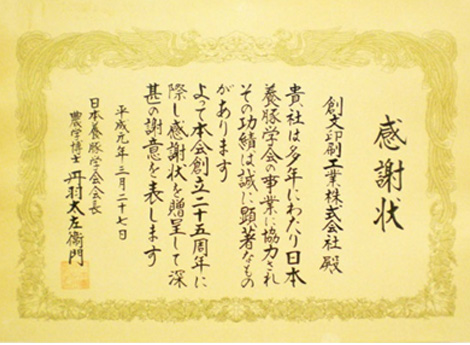 感謝状
創文印刷工業株式会社 殿
貴社は多年にわたり日本
養豚学会の事業に協力され
その功績は誠に顕著なもの
があります
よって本会創立二十五周年に
際し感謝状を贈呈して深
甚の謝意を表します
平成元年三月二十七日
日本養豚学会会長
農学博士 丹羽太左衛門